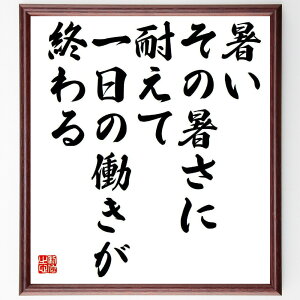 暑い
その暑さに
耐えて
一日の働きが
終わる